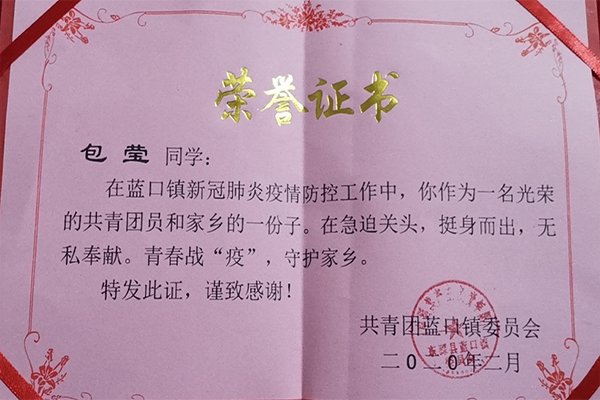 荣誉证书
包莹 同学:
在蓝口镇新冠肺炎疫情防控工作中，你作为一名光荣
的共青团员和家乡的一份子。在急迫关头，挺身而出，无
私奉献。青春战“疫”，守护家乡。
特发此证，谨致感谢！
共青团蓝口镇委员会
二0二0年二月